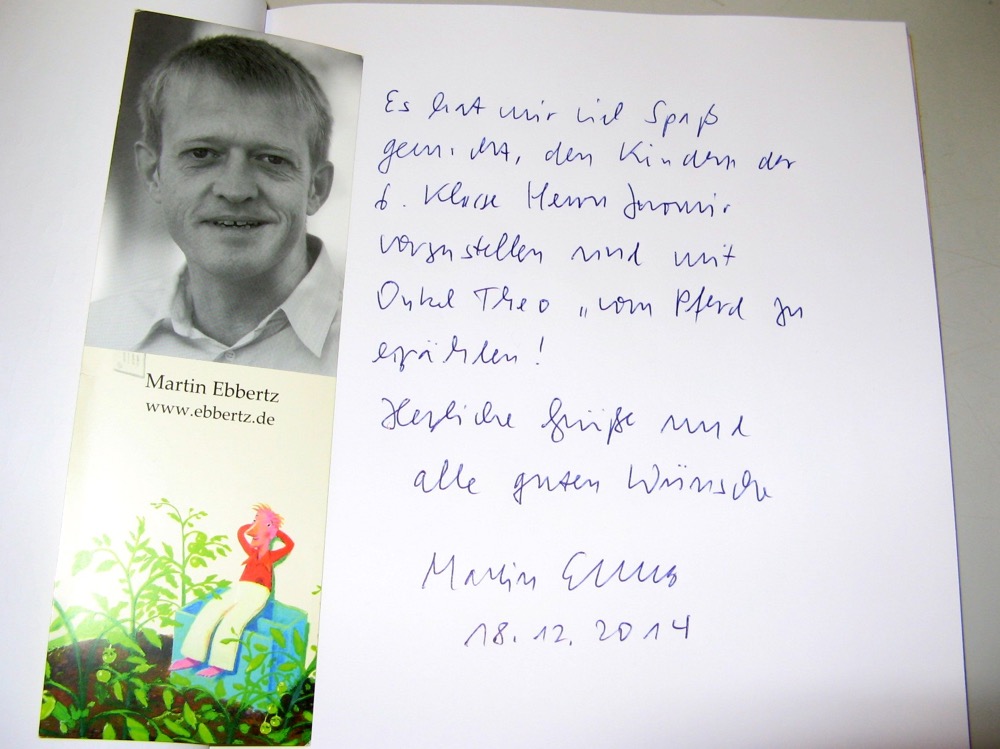 Martin Ebbertz
www.ebbertz.de
Es hat mir viel Spaß
gemacht, den Kindern der
6. Klasse Herrn Jaromir
vorzustellen und mit
Onkel Theo „vom Pferd zu
erzählen!
Herzliche Grüße und
alle guten Wünsche
Martin Ebbertz
18.12.2014